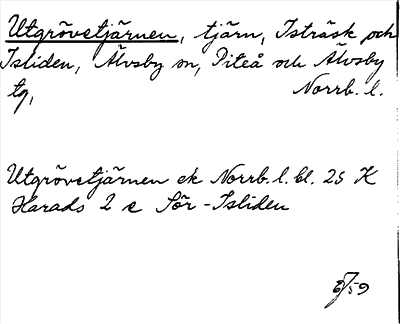 Utgrövetjärnen, tjärn, Isträsk och
Isliden, Älvsby sn, Piteå och Älvsby
tg, Norrb. l.
Utgrövetjärnen ek Norrb. l. bl. 25 K
Harads 2 c Sör-Isliden
6/7 59